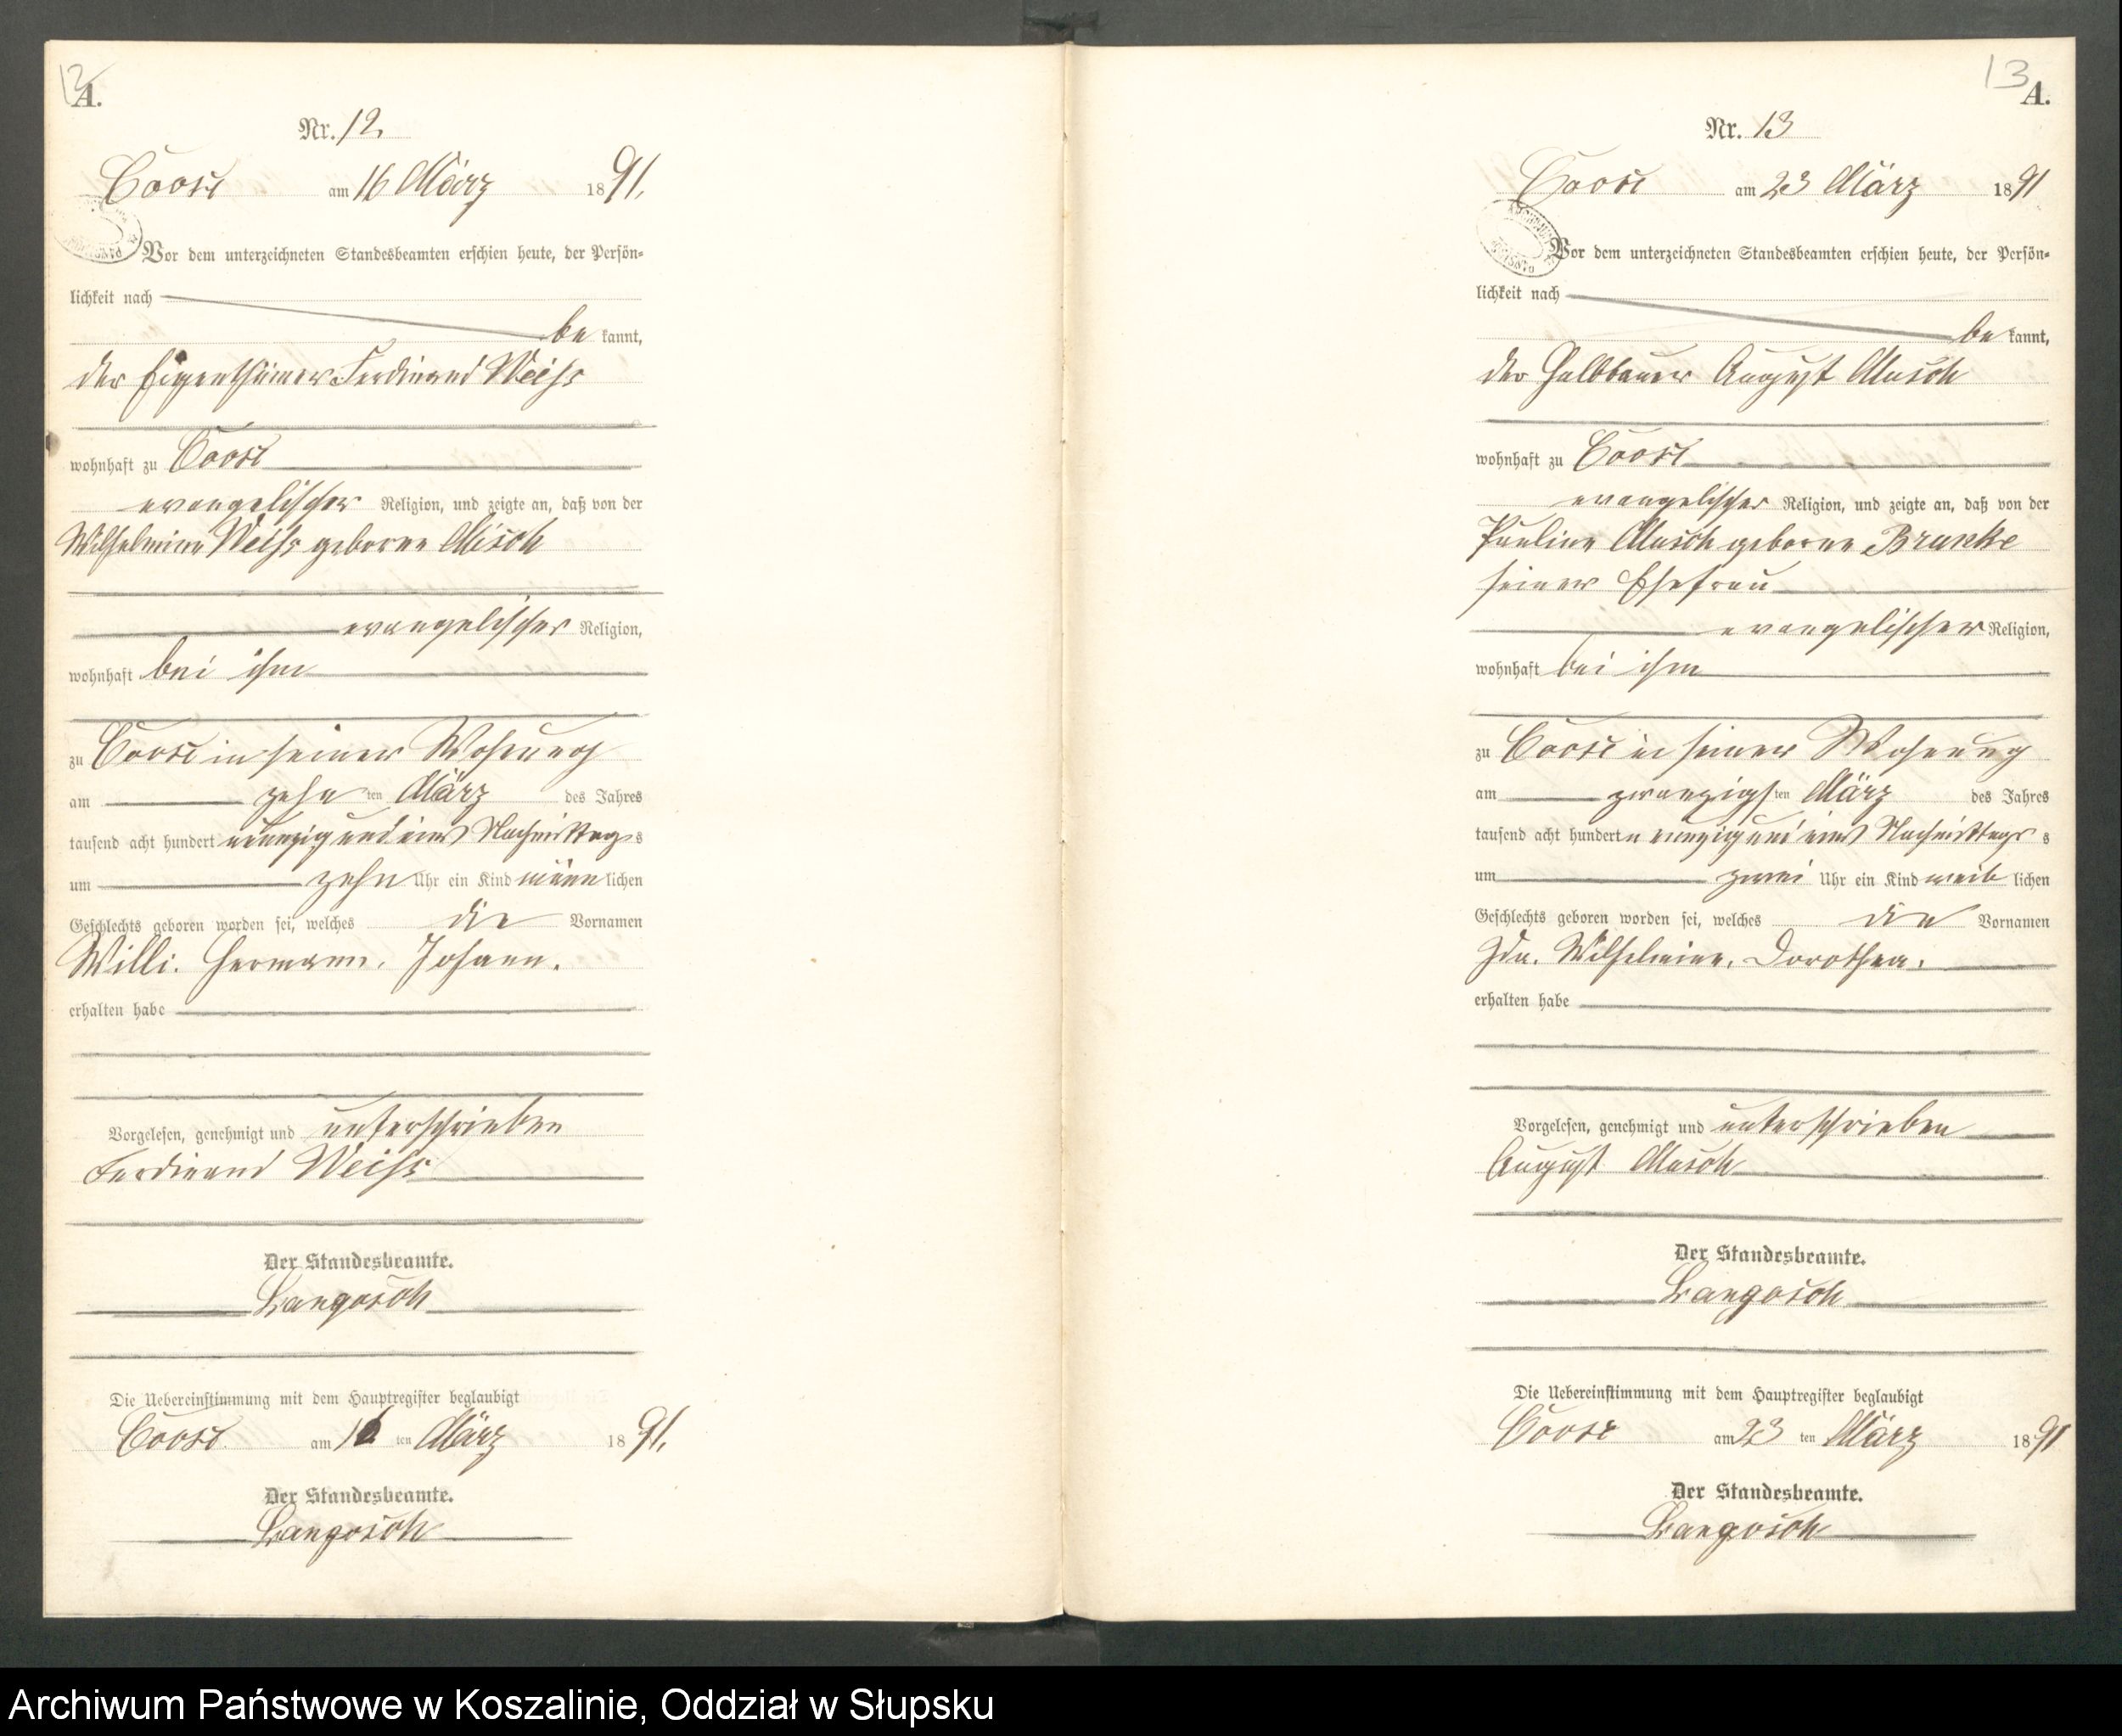 12
A.
Nr. 12.
Coose am 16 März 1891.
Vor dem unterzeichneten Standesbeamten erschien heute, der Persön-
lichkeit nach
be kannt,
der Eigenthümer Ferdinand Weiss
wohnhaft zu Coose
evangelischer Religion, und zeigte an, daß von der
Wilhelmine Weiss geborne Misch
evangelischer Religion,
wohnhaft bei ihm
zu Coose in seiner Wohnung
am zehn ten März des Jahres
tausend acht hundert neunzig und eins Nachmittag s
um zehn Uhr ein Kind männ lichen
Geschlechts geboren worden sei, welches die Vornamen
Willi. Hermann. Johann.
erhalten habe
Vorgelesen, genehmigt und unterschrieben
Ferdinand Weiss
Der Standesbeamte.
Langosch
Die Uebereinstimmung mit dem Hauptregister beglaubigt
Coose am 16 ten März 1891.
Der Standesbeamte.
Langosch
13
A.
Nr. 13
Coose am 23 März 1891
Vor dem unterzeichneten Standesbeamten erschien heute, der Persön-
lichkeit nach
be kannt,
der Halbbauer August Musch
wohnhaft zu Coose
evangelischer Religion, und zeigte an, daß von der
Pauline Musch geborne Brunke
seiner Ehefrau
evangelischer Religion,
wohnhaft bei ihm
zu Coose in seiner Wohnung
am zwanzigs ten März des Jahres
tausend acht hundert neunzig und eins Nachmittags s
um zwei Uhr ein Kind weib lichen
Geschlechts geboren worden sei, welches die Vornamen
Ida. Wilhelmine. Dorothea.
erhalten habe
Vorgelesen, genehmigt und unterschrieben
August Musch
Der Standesbeamte.
Langosch
Die Uebereinstimmung mit dem Hauptregister beglaubigt
Coose am 23 ten März 1891
Der Standesbeamte.
Langosch
Archiwum Państwowe w Koszalinie, Oddział w Słupsku